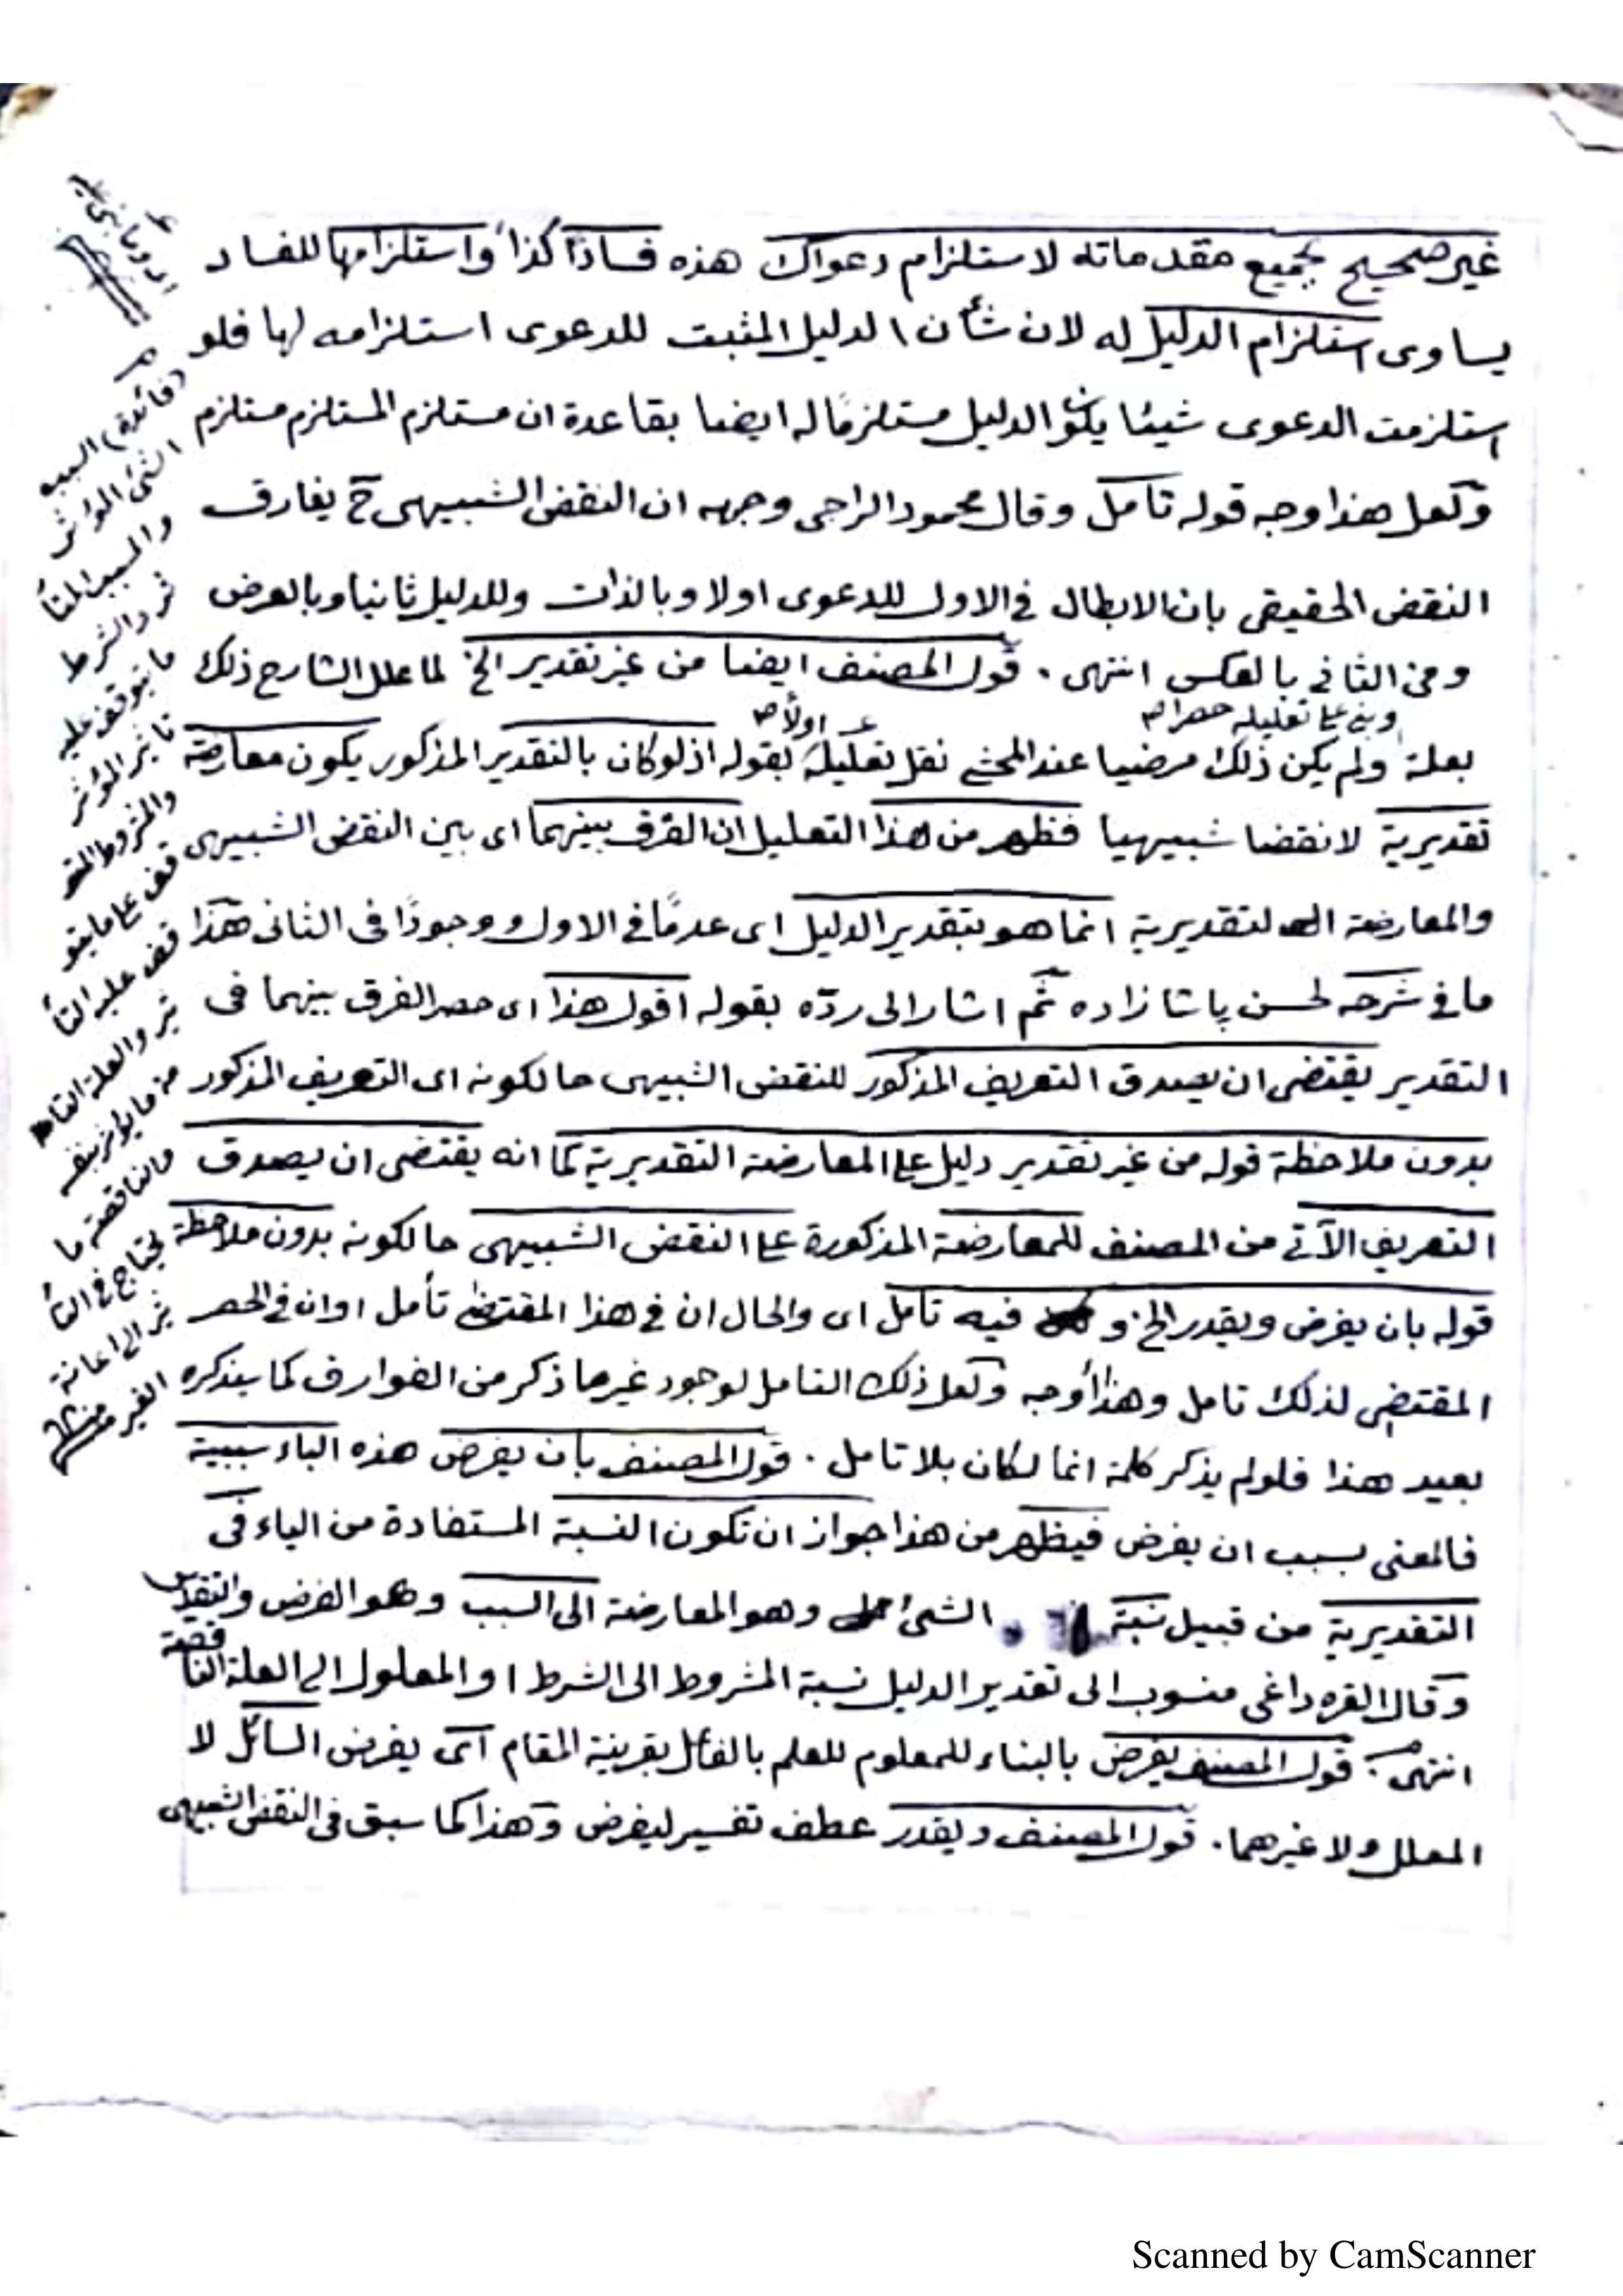 غير صحيح بجميع مقدماته لاستلزام دعواك هذه فسادًا كذا واستلزامها للفساد
يساوى استلزام الدليل له لان شأن الدليل المثبت للدعوى استلزامه لها فلو
استلزمت الدعوى شيئا يكون الدليل مستلزمًا له ايضا بقاعدة ان مستلزم المستلزم مستلزم
ولعل هذا وجه قوله تأمل وقال محمود الراجى وجهه ان النقض الشبيهى ح يفارق
النقض الحقيقى بان الابطال فى الاول للدعوى اولا وبالذات وللدليل ثانيا وبالعرض
ومن الثانى بالعكس انتهى . قول المصنف ايضا من غير تقدير الخ لما علل الشارح ذلك
وبنى على تعليله حصرا صح اولًا صح
بعلة ولم يكن ذلك مرضيا عند المحشى نقل تعليله بقوله اذ لو كان بالتقدير المذكور يكون معارضة
تقديرية لا نقضا شبيهيا فظهر من هذا التعليل ان الفرق بينهما اى بين النقض الشبيهى
والمعارضة التقديرية انما هو بتقدير الدليل اى عدمًا فى الاول ووجودًا فى الثانى هذا
ما فى شرحه لحسن پاشا زاده ثم اشار الى ردّه بقوله اقول هذا اى حصر الفرق بينهما فى
التقدير يقتضى ان يصدق التعريف المذكور للنقض الشبيهى حالكونه اى التعريف المذكور
بدون ملاحظة قوله من غير تقدير دليل على المعارضة التقديرية كما انه يقتضى ان يصدق
التعريف الآتى من المصنف للمعارضة المذكورة على النقض الشبيهى حالكونه بدون ملاحظة
قوله بان يفرض ويقدر الخ و فيه تأمل اى والحال ان فى هذا المقتضى تأمل او ان فى الحصر
المقتضى لذلك تامل وهذا أوجه ولعل ذلك التامل لوجود غير ما ذكر من الفوارق كما سيذكره
بعيد هذا فلو لم يذكر كلمة انما لكان بلا تامل . قول المصنف بأن يفرض هذه الباء سببية
فالمعنى بسبب ان يفرض فيظهر من هذا جواز ان تكون النسبة المستفادة من الياء فى
التقديرية من قبيل نسبة الشئ وهو المعارضة الى السبب وهو الفرض والتقدير
وقال القره داغى منسوب الى تقدير الدليل نسبة المشروط الى الشرط او المعلول الى العلة الناقصة
انتهى . قول المصنف يفرض بالبناء للمعلوم للعلم بالفاعل بقرينة المقام اى يفرض السائل لا
المعلل ولا غيرهما . قول المصنف ويقدر عطف تفسير ليفرض وهذا كما سبق فى النقض الشبيهى
(فائدة) السبب
الشئ المؤثر
والمسبب المتأ
ثر والشرط
ما يتوقف عليه
تأثير المؤثر
والمشروط المتو
قف على ما يتو
قف عليه التأ
ثير والعلة التامة
ما يؤثر بنفسه
والناقصة ما
يحتاج فى التأ
ثير الى اعانة
الغير منه
Scanned by CamScanner